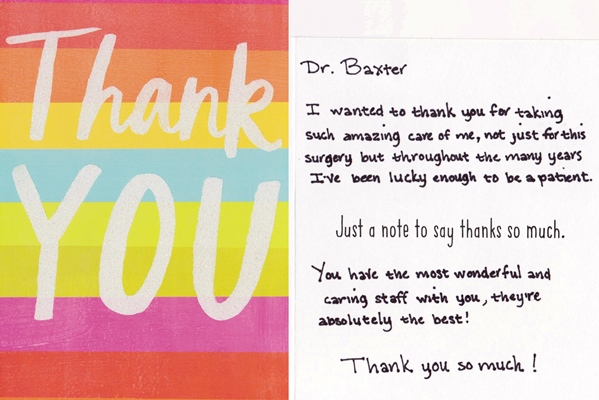 Thank
YOU
Dr. Baxter
I wanted to thank you for taking
such amazing care of me, not just for this
surgery but throughout the many years
I've been lucky enough to be a patient.
Just a note to say thanks so much.
You have the most wonderful and
caring staff with you, they're
absolutely the best!
Thank you so much!